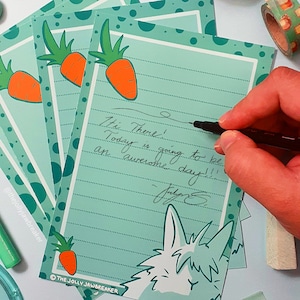 Hi There!
Today is going to be
an awesome day!!!
© THE JOLLY JAWBREAKER